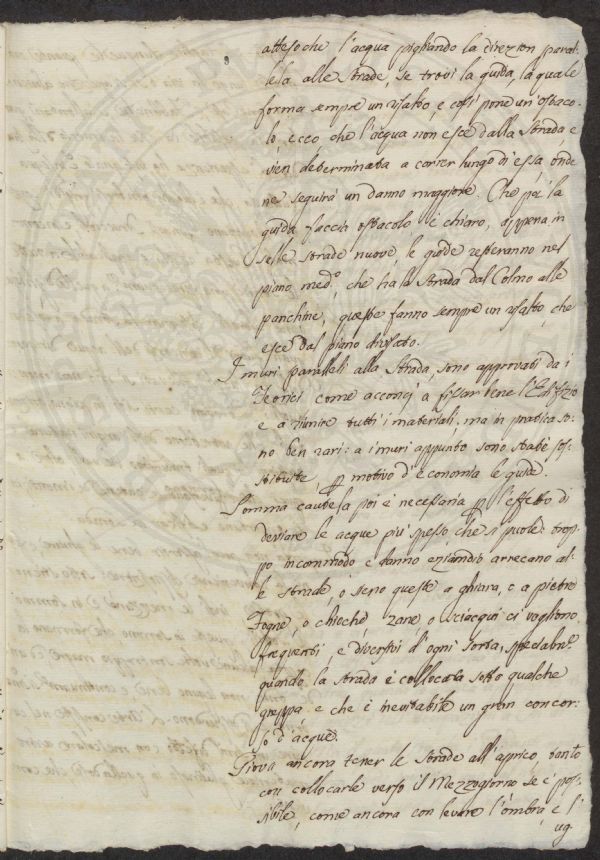 atteso che l'acqua pigliando la direzion paral-
lela alle strade, se trovi la guida, la quale
forma sempre un risalto, e così pone un ostaco-
lo, ecco che l'acqua non esce dalla strada e
vien determinata a correr lungo di essa onde
ne seguirà un danno maggiore. Che poi la
guida faccia ostacolo è chiaro, appena in
selle strade nuove, le guide resteranno nel
piano med.º che ha la strada dal Colmo alle
panchine, queste fanno sempre un risalto, che
esce dal piano divisato.
I muri paralleli alla strada, sono approvati da i
Teorici come acconci a fissar bene l'Edifizio
e a riunire tutti i materiali, ma in pratica so-
no ben rari: a i muri appunto sono state sos-
tituite, p motivo d'economia le guide.
Somma cautela poi è necessaria p l'effetto di
deviare le acque più spesso che si puole: trop-
po incommodo e danno eziamdio arrecano al-
le strade, o sieno queste a ghiara, o a pietre
Fogne, o chioche zane, o sciacqui ci vogliono
frequenti, e diversivi d'ogni sorta,
quando la strada è collocata sotto qualche
greppa e che è inevitabile un gran concor-
so d'acque.
Giova ancora tener le strade all'aprico, tanto
con collocarle verso il Mezzogiorno se è pos-
sibile, come ancora con levare l'ombra, e l'
ug